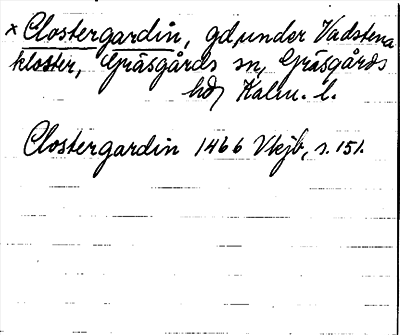 × Clostergardin, gd, under Vadstena
kloster, Gräsgårds sn, Gräsgårds
hd, Kalm. l.
Clostergardin 1466 Vkjb, s. 151.